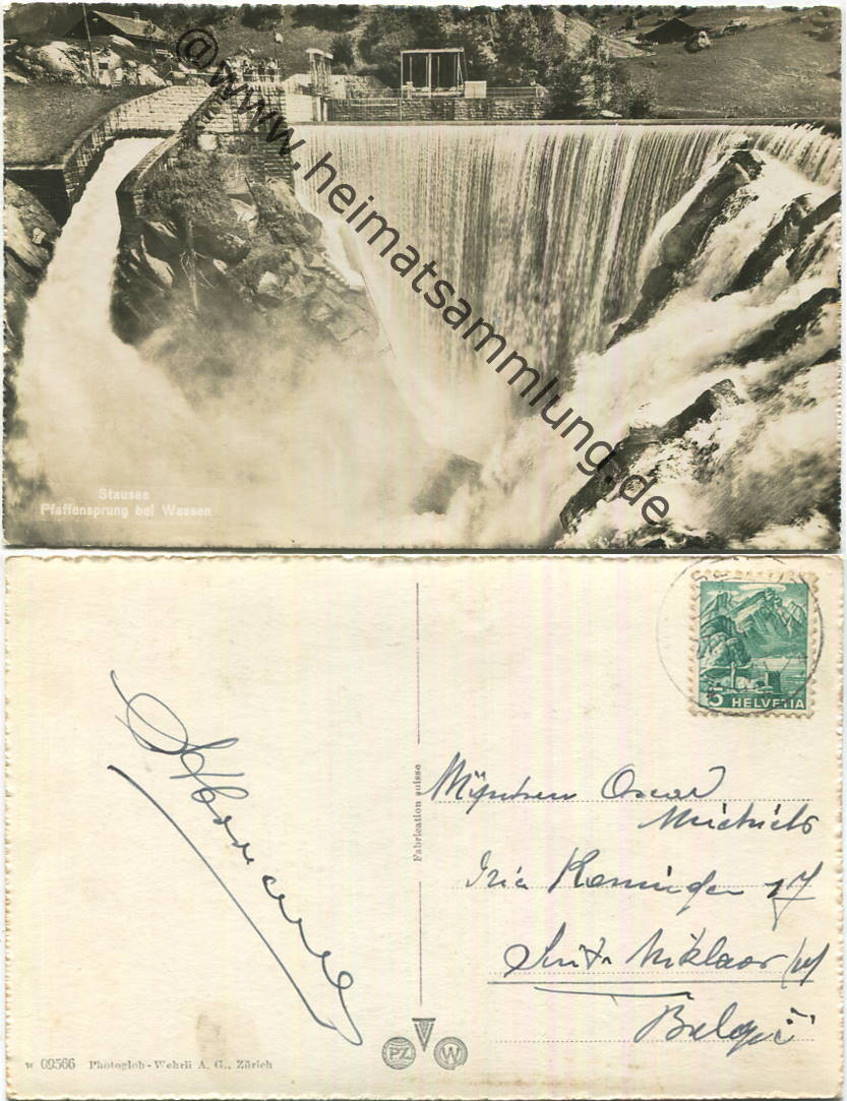 @www.heimatsammlung.de
Stausee
Pfaffensprung bei Wassen
5 HELVETIA
Fabrication suisse
Oscar
Michiels
Drie Koningen 17
Sint Niklaas /W
België
PZ W
W 09566 Photoglob-Wehrli A. G., Zürich